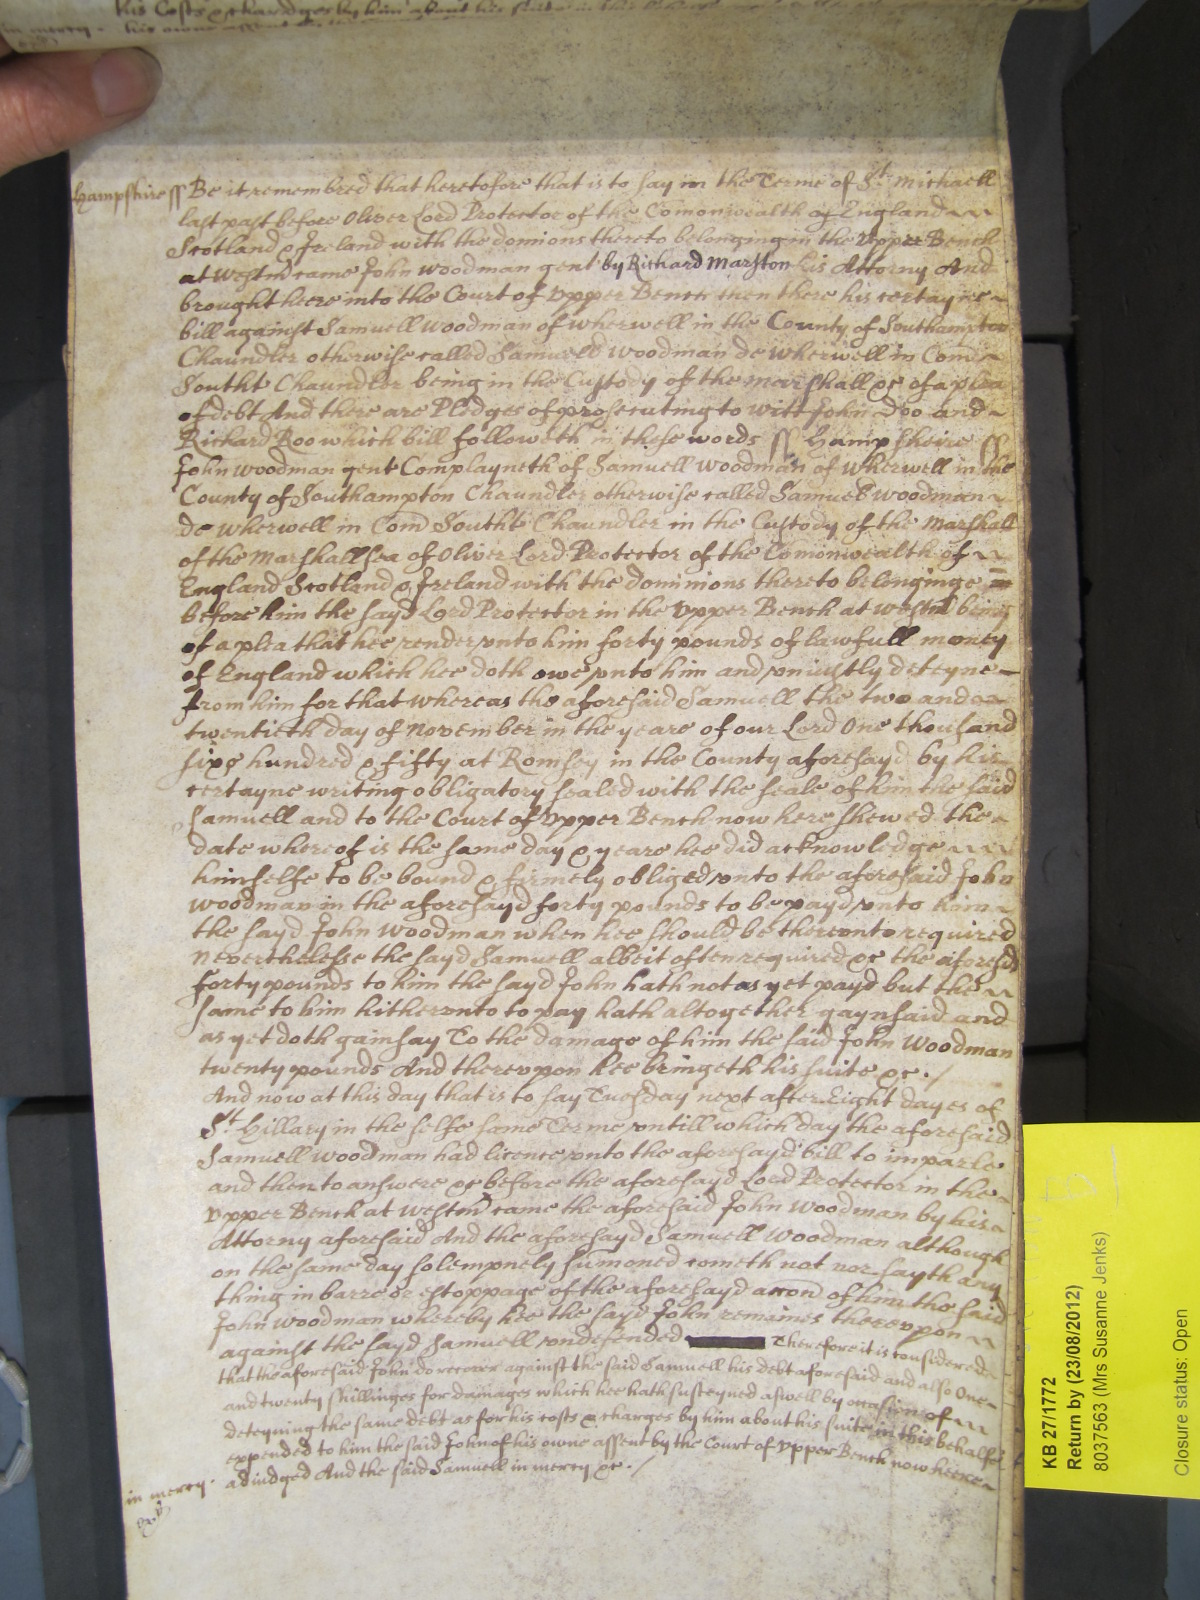 his Costs & chardges by him about his suite in this
in mercy - his owne assent
Hampshire ss Be it remembred that heretofore that is to say in the Terme of St. Michaell
last past before Oliver Lord Protector of the Comonwealth of England
Scotland & Ireland with the dominions thereto belonging in the Upper Bench
at Westm came John Woodman gent by Richard Marston his Attorny And
brought heere into the Court of Upper Bench then there his certayne
bill against Samuell Woodman of Wherwell in the County of Southampton
Chaundler otherwise called Samuell Woodman de Wherwell in Com
Southt Chaundler being in the Custody of the Marshall &c of a plea
of debt And there are Pledges of prosecuting to witt John Doo and
Richard Roo which bill followeth in these words ss Hampsheire ss
John Woodman gent Complayneth of Samuell Woodman of Wherwell in the
County of Southampton Chaundler otherwise called Samuell Woodman
de Wherwell in Com Southt Chaundler in the Custody of the Marshall
of the Marshallsea of Oliver Lord Protector of the Comonwealth of
England Scotland & Ireland with the dominions thereto belonginge
before him the sayd Lord Protector in the Upper Bench at Westm being
of a plea that hee render unto him forty pounds of lawfull money
of England which hee doth owe unto him and uniustly deteyne
from him for that whereas the aforesaid Samuell the two and
twentieth day of November in the yeare of our Lord One thousand
sixe hundred & fifty at Romsey in the County aforesayd by his
certayne writing obligatory sealed with the seale of him the said
Samuell and to the Court of Upper Bench now here shewed the
date whereof is the same day & yeare hee did acknowledge
himselfe to be bound & firmely obliged unto the aforesaid John
Woodman in the aforesayd forty pounds to be payd unto him
the sayd John Woodman when hee should be thereunto required
neverthelesse the sayd Samuell albeit often required &c the aforesd
forty pounds to him the sayd John hath not as yet payd but the
same to him hitherunto to pay hath altogether gaynsaid and
as yet doth gainsay To the damage of him the said John Woodman
twenty pounds And thereupon hee bringeth his suite &c. /
And now at this day that is to say Tuesday next after Eight dayes of
St. Hillary in the selfe same Terme untill which day the aforesaid
Samuell Woodman had licence unto the aforesayd bill to imparle
and then to answere &c before the aforesayd Lord Protector in the
Upper Bench at Westm came the aforesaid John Woodman by his
Attorny aforesaid And the aforesayd Samuell Woodman although
on the same day solempnely sumoned cometh not nor sayth any
thing in barre or estoppage of the aforesayd accon of him the said
John Woodman whereby hee the sayd John remaines thereupon
against the sayd Samuell undefended Therefore it is considered
that the aforesaid John do recover against the said Samuell his debt aforesaid and also One
and twenty shillinges for damages which hee hath susteyned aswell by occasion of
deteyning the same debt as for his costs & charges by him about his suite in this behalfe
expended to him the said John of his owne assent by the Court of Upper Bench now heere
in mercy. adiudged And the said Samuell in mercy &c. /
KB 27/1772
Return by (23/08/2012)
8037563 (Mrs Susanne Jenks)
Closure status: Open